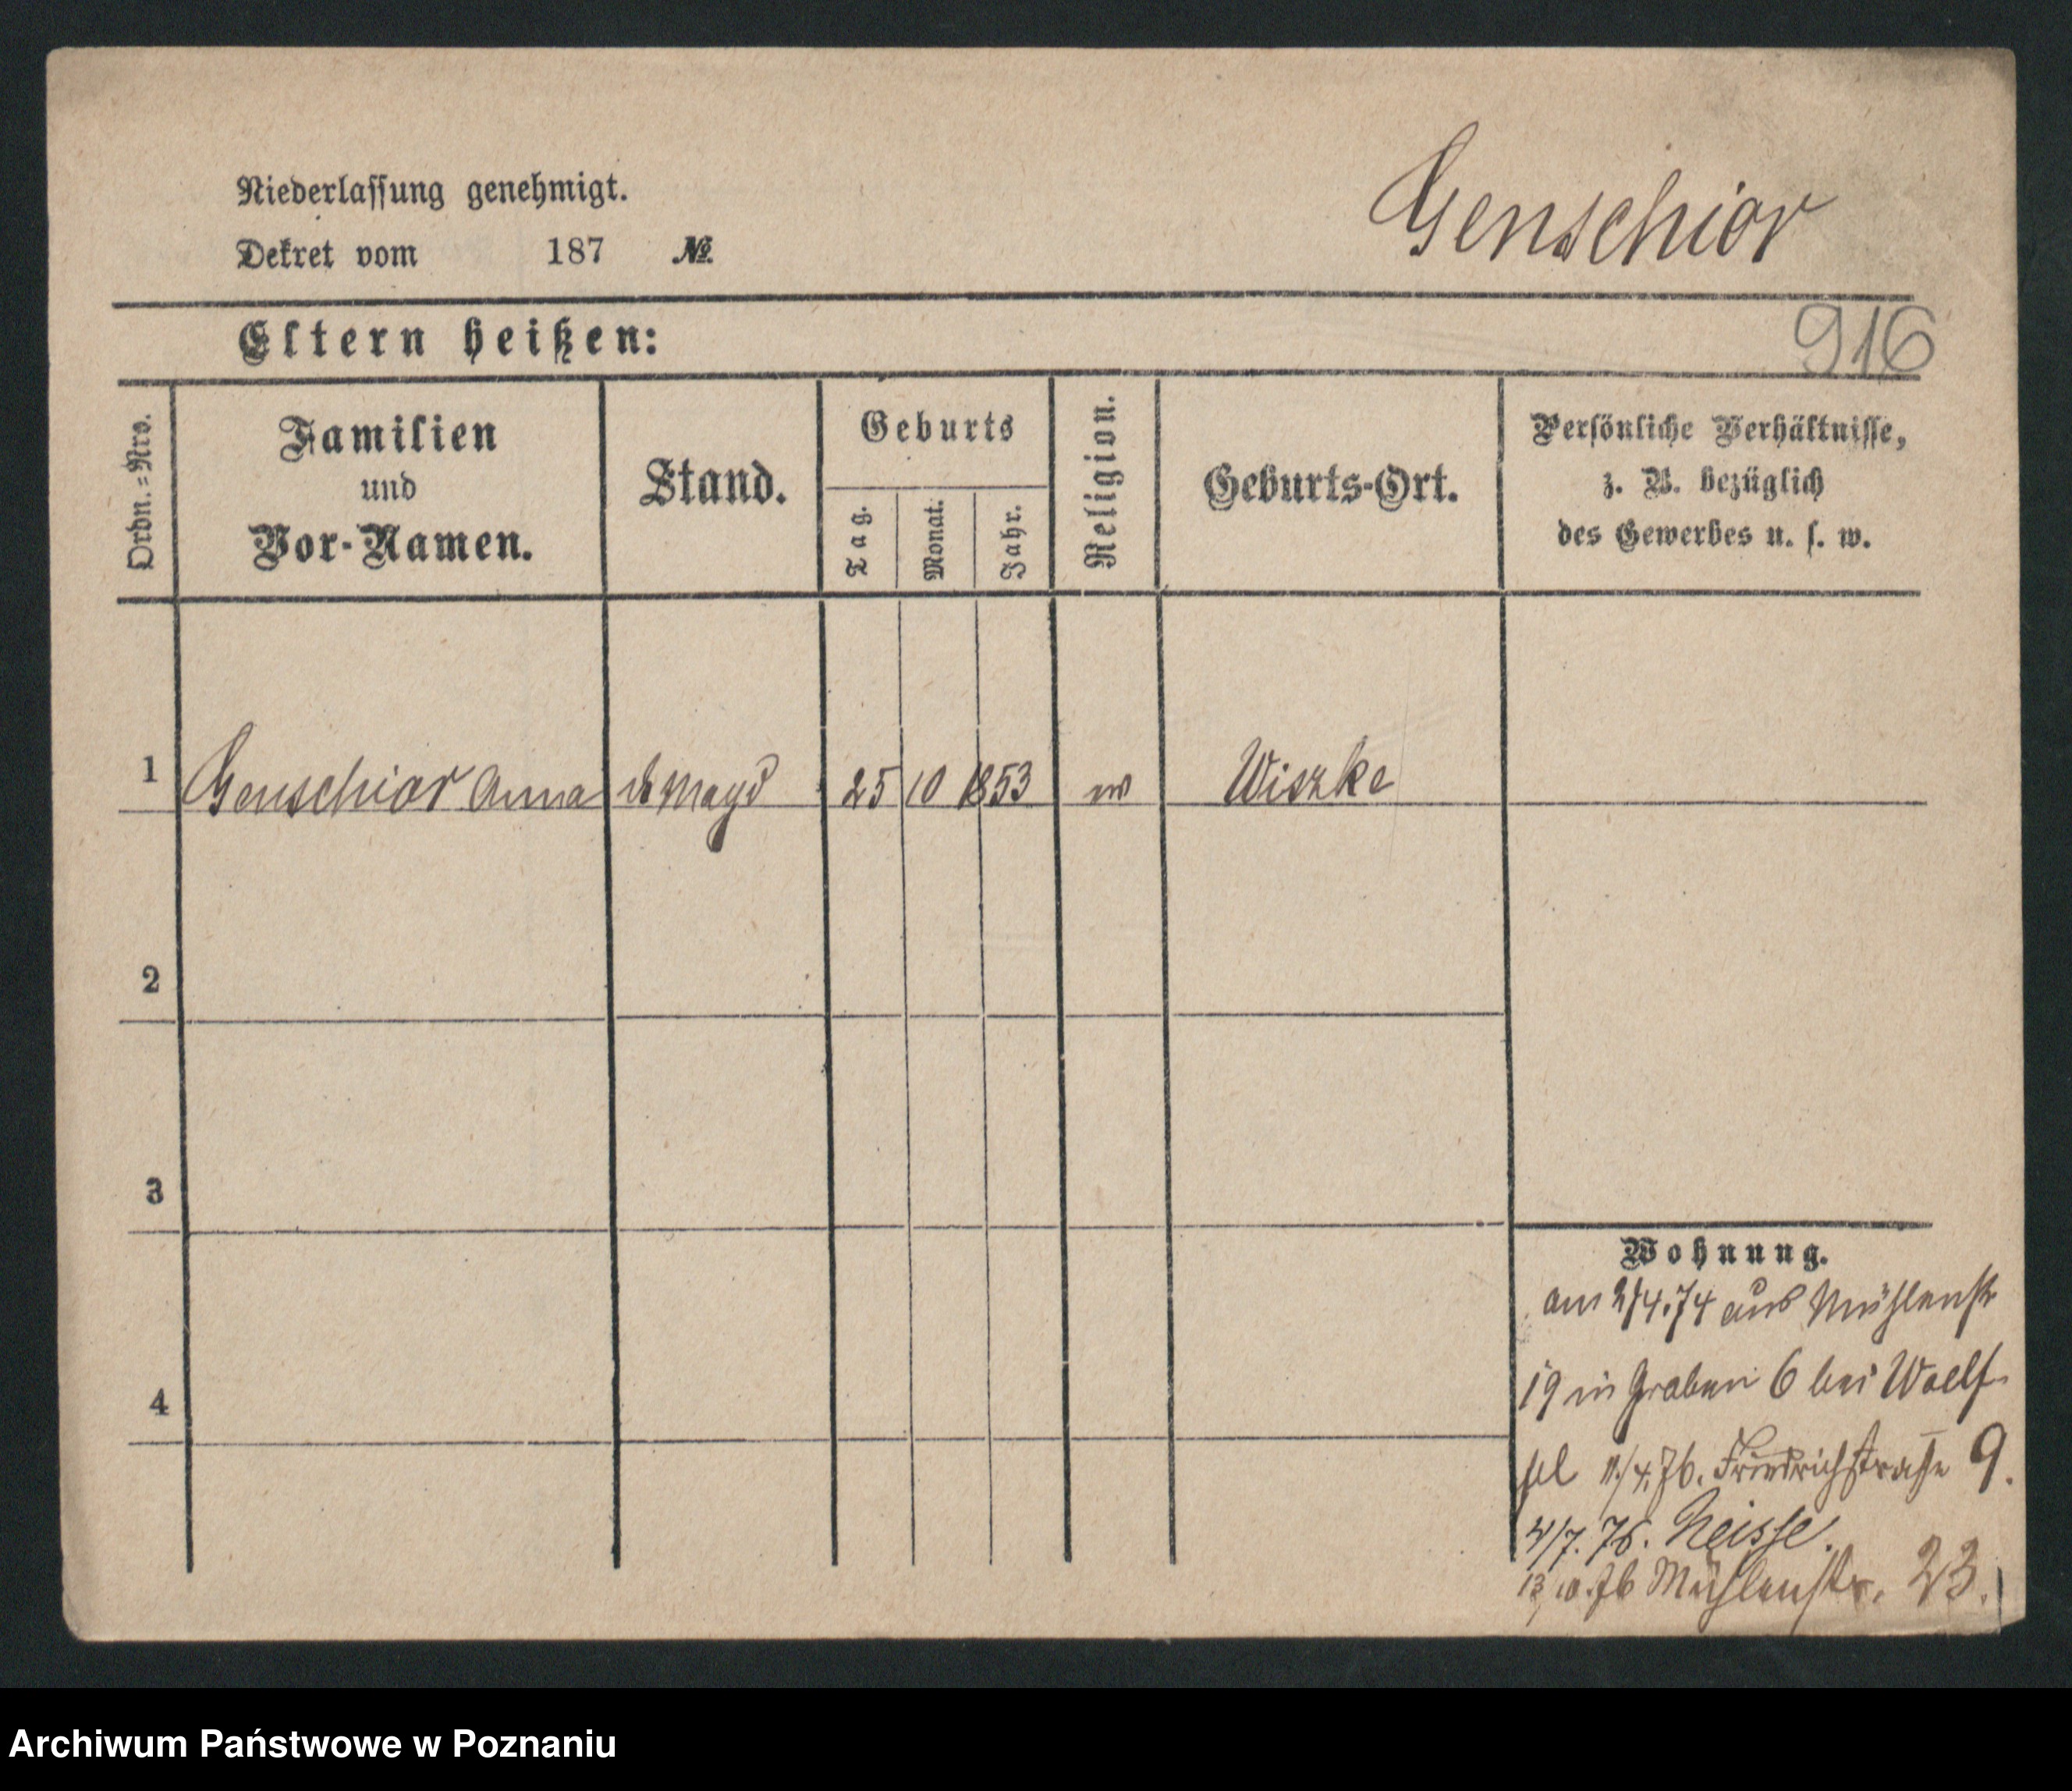 Genschior
Niederlassung genehmigt.
Dekret vom 187 №
916
Eltern heißen:
Ordn.-Nro.
Familien
und
Vor-Namen.
Stand.
Geburts
Tag.
Monat.
Jahr.
Religion.
Geburts-Ort.
Persönliche Verhältnisse,
z. B. bezüglich
des Gewerbes u. s. w.
1 Genschior Anna Magd 25 10 1853 Wiszke
2
3
4
Wohnung.
am 2/4.74 aus Mühlenstr
19 in Graben 6 bei Woelf-
fel 11./4.76. Friedrichstraße 9.
/7. 76. Neisse.
13/10.76 Mühlenstr. 23.
Archiwum Państwowe w Poznaniu